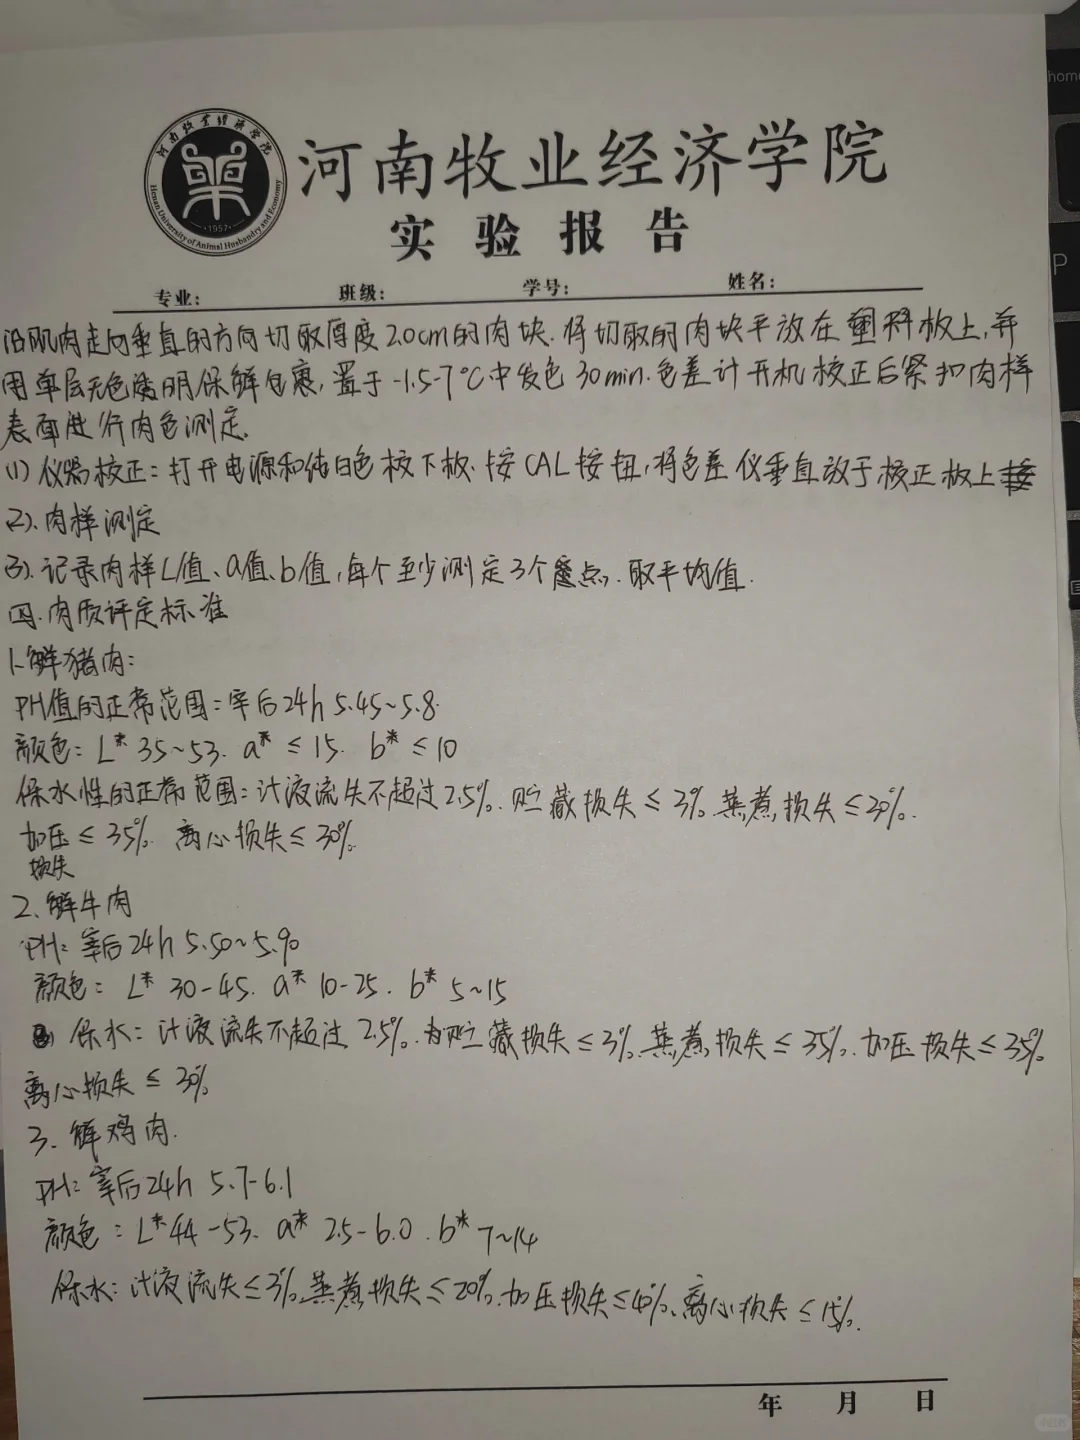 河南牧业经济学院
Henan University of Animal Husbandry and Economy
·1957·
河南牧业经济学院
实验报告
专业: 班级: 学号: 姓名:
沿肌肉走向垂直的方向切取厚度2.0cm的肉块.将切取的肉块平放在塑料板上,并
用单层无色透明保鲜包裹,置于-1.5-7℃中发色30min.色差计开机校正后紧扣肉样
表面进行肉色测定.
(1) 仪器校正:打开电源和纯白色校下板.按CAL按扭,将色差仪垂直放于校正板上
(2).肉样测定
(3).记录肉样L值、a值、b值,每个至少测定3个点.取平均值.
四.肉质评定标准
1.鲜猪肉:
PH值的正常范围:宰后24h 5.45~5.8.
颜色: L* 35~53. a* ≤15. b* ≤10
保水性的正常范围:汁液流失不超过2.5%.贮藏损失≤3%.蒸煮损失≤30%.
加压≤35%. 离心损失≤30%.
损失
2.鲜牛肉
PH:宰后24h 5.50~5.90
颜色: L* 30-45. a* 10-25. b* 5~15
保水:汁液流失不超过2.5%.贮藏损失≤3%.蒸煮损失≤35%.加压损失≤35%
离心损失≤30%
3.鲜鸡肉.
PH:宰后24h 5.7-6.1
颜色: L* 44-53. a* 2.5-6.0. b* 7~14
保水:汁液流失≤3%.蒸煮损失≤20%.加压损失≤40%、离心损失≤15%.
年 月 日
home
P